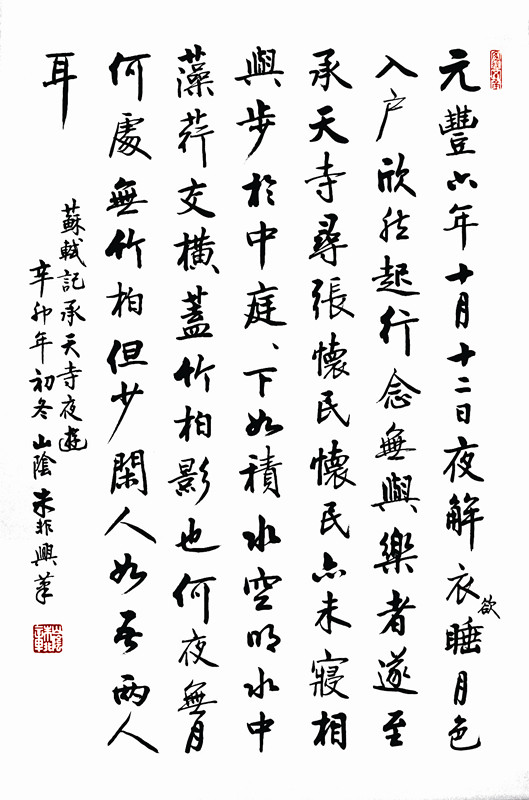 元豐六年十月十二日夜解衣欲睡月色
入户欣然起行念無與樂者遂至
承天寺尋張懷民懷民亦未寢相
與步於中庭、下如積水空明水中
藻荇交橫蓋竹柏影也何夜無月
何處無竹柏但少閑人如吾兩人
耳
蘇軾記承天寺夜遊
辛卯年初冬山陰朱非興筆